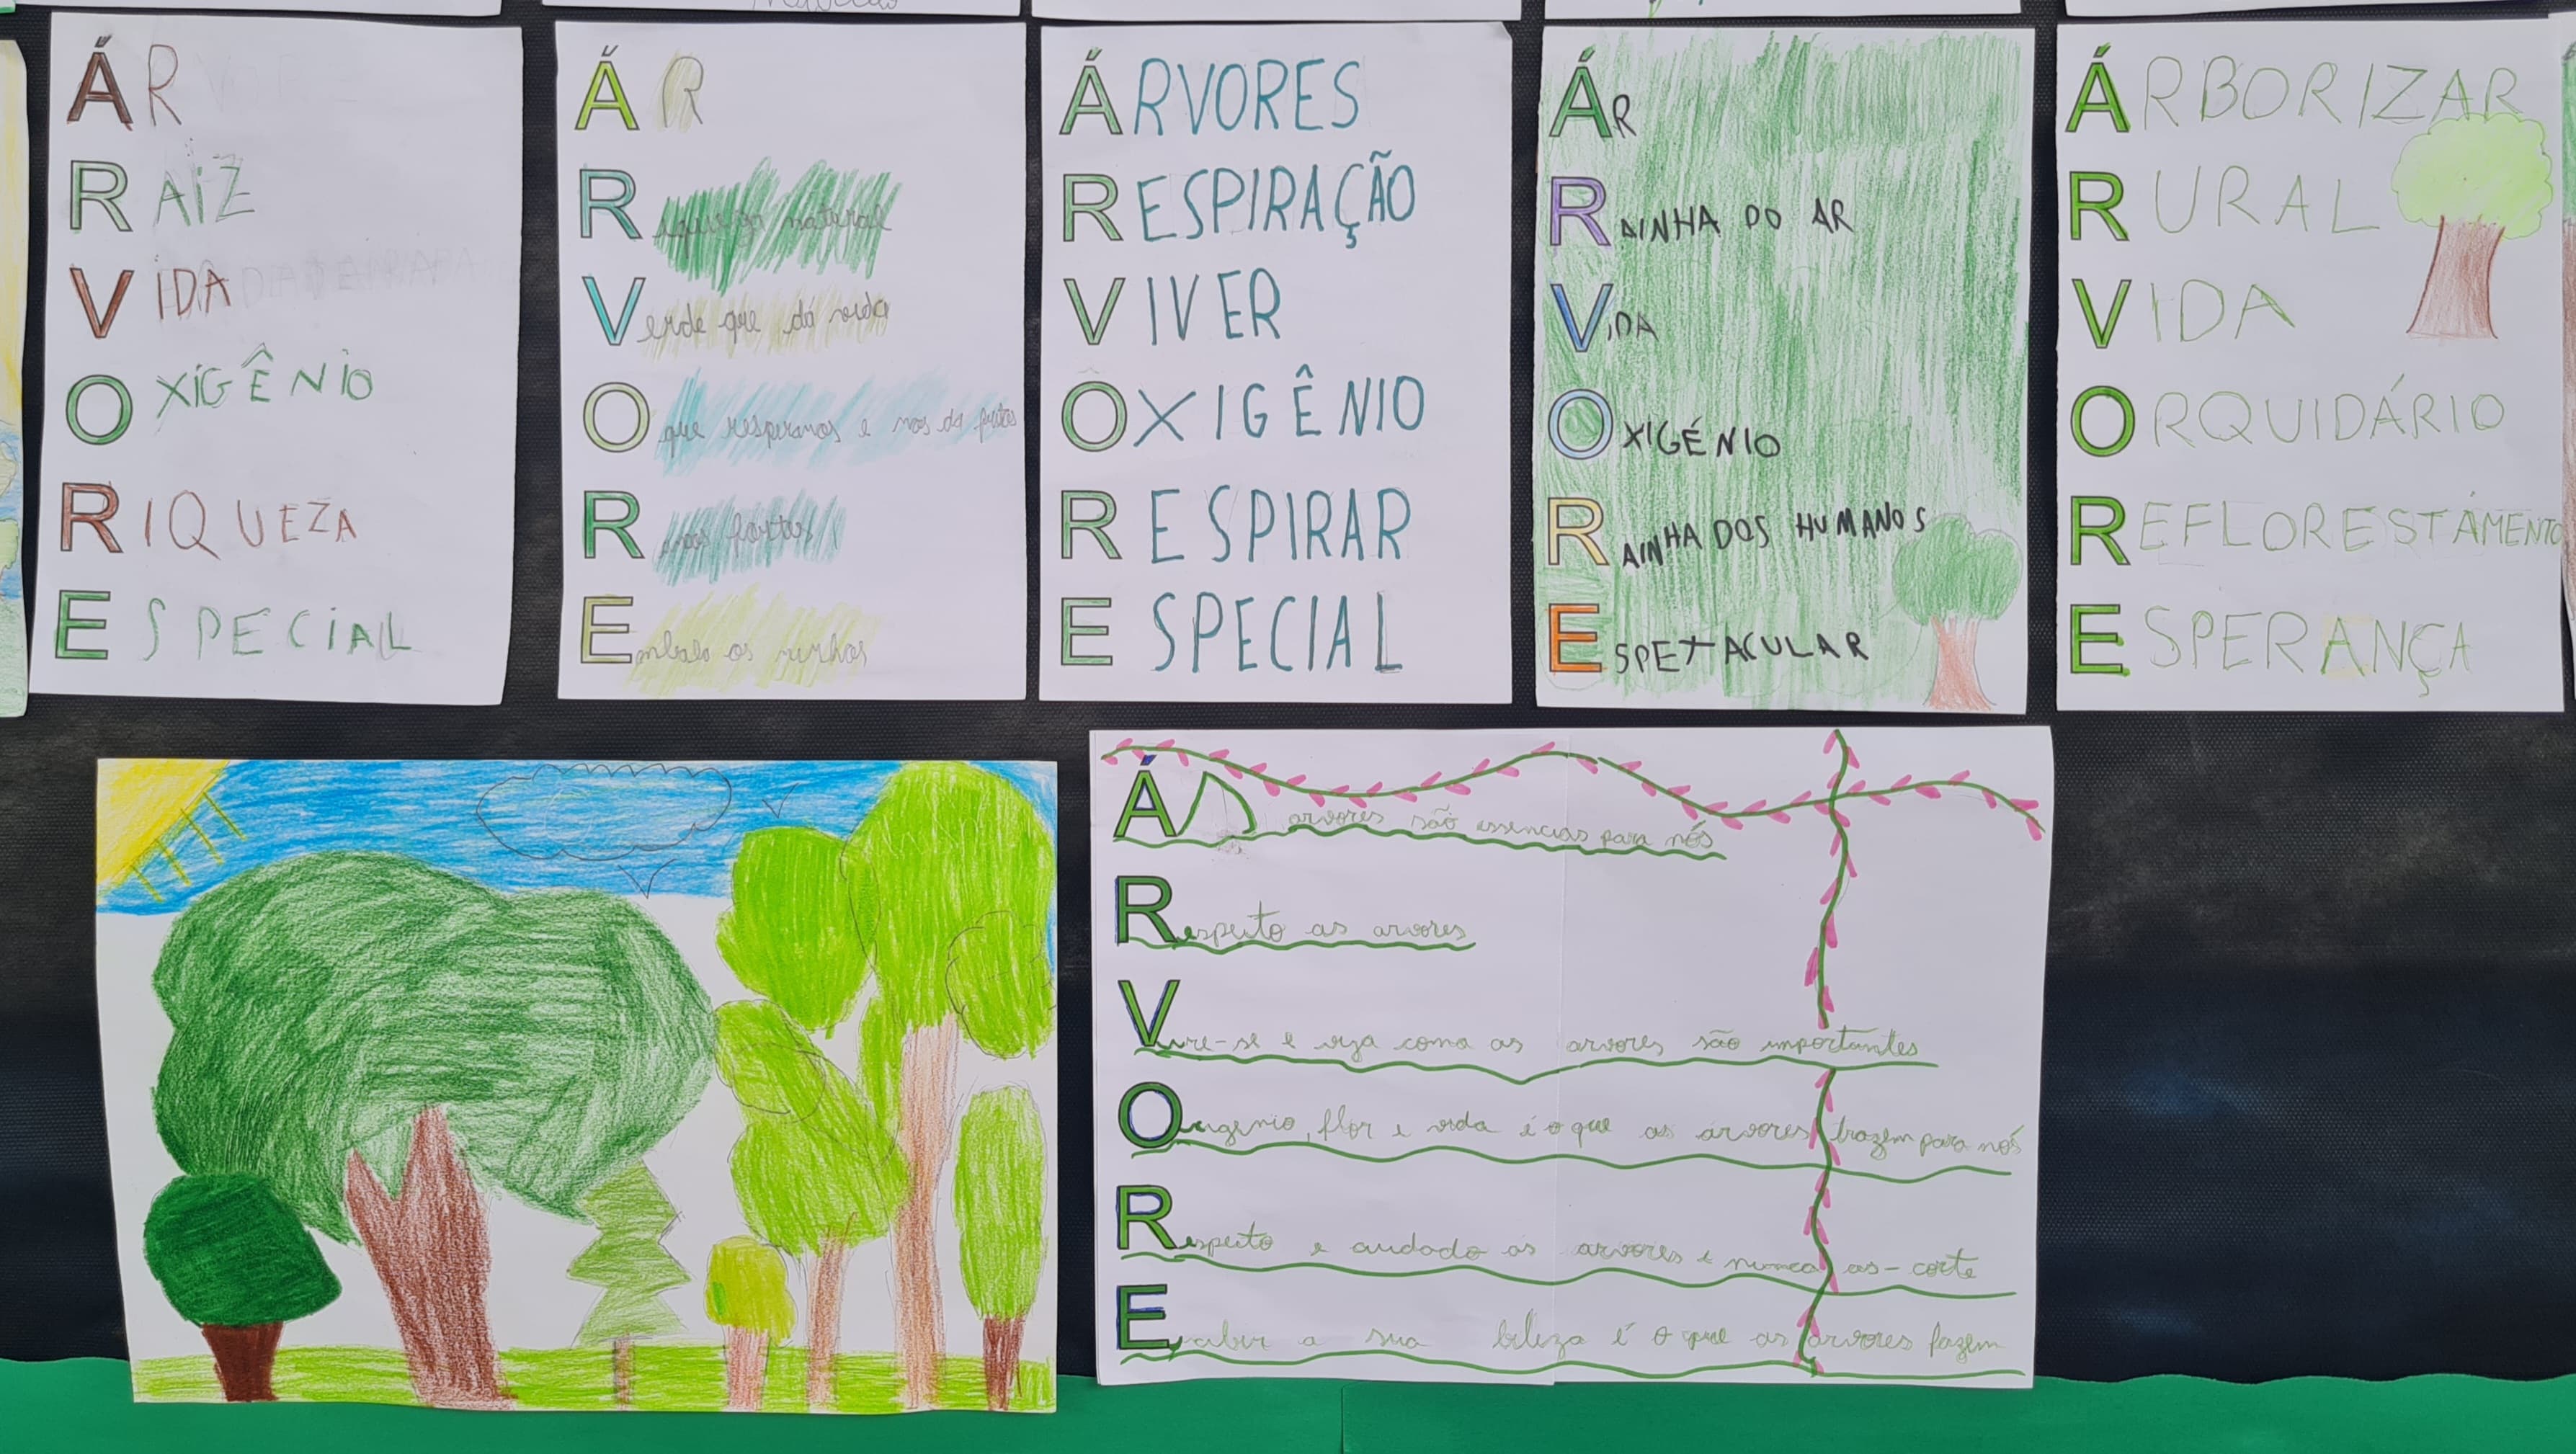 ÁR
RAIZ
VIDA
OXIGÊNIO
RIQUEZA
ESPECIAL
ÁR
Riqueza natural
Verde que dá vida
O que respiramos e nos dá frutos
R fortes
Embala os ninhos
ÁRVORES
RESPIRAÇÃO
VIVER
OXIGÊNIO
RESPIRAR
ESPECIAL
ÁR
RAINHA DO AR
VIDA
OXIGÉNIO
RAINHA DOS HUMANOS
ESPETACULAR
ÁRBORIZAR
RURAL
VIDA
ORQUIDÁRIO
REFLORESTAMENTO
ESPERANÇA
ÁS arvores são essencias para nós
Respeito as arvores
Vire-se e veja como as arvores são importantes
Oxigenio, flor e vida é o que as árvores trazem para nós
Respeito e cuidado as arvores e nunca as-corte
Exabir a sua beleza é o que as árvores fazem